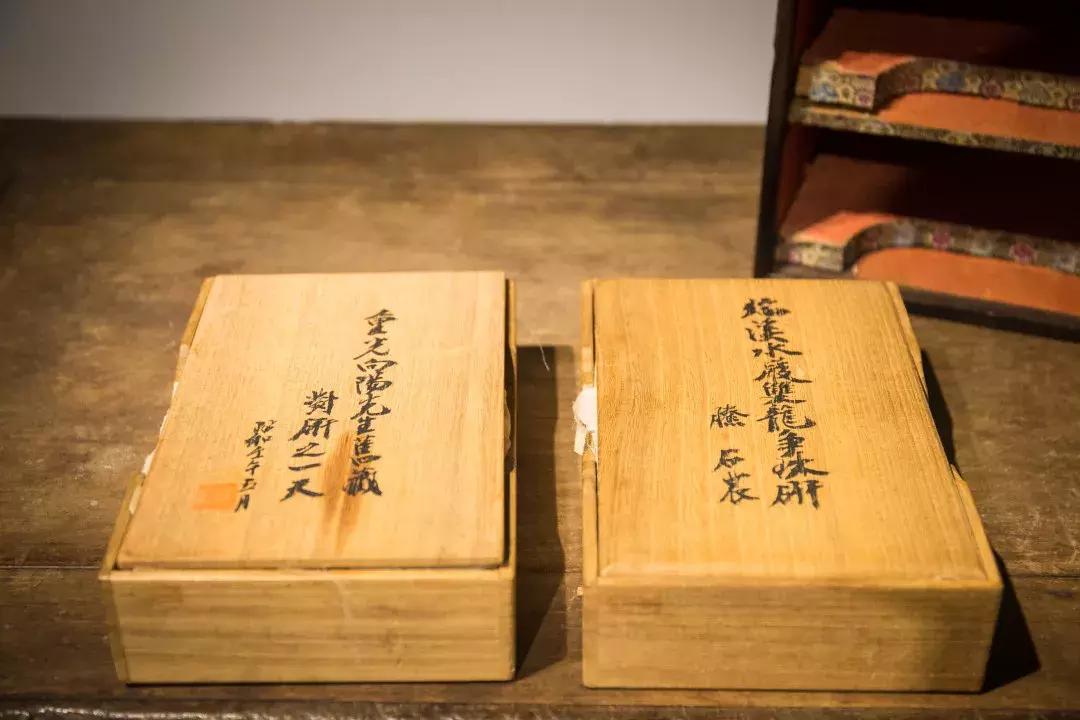 重光向陽先生舊藏
對研之一 天
昭和 五月
端溪水巖雙龍爭珠研
石